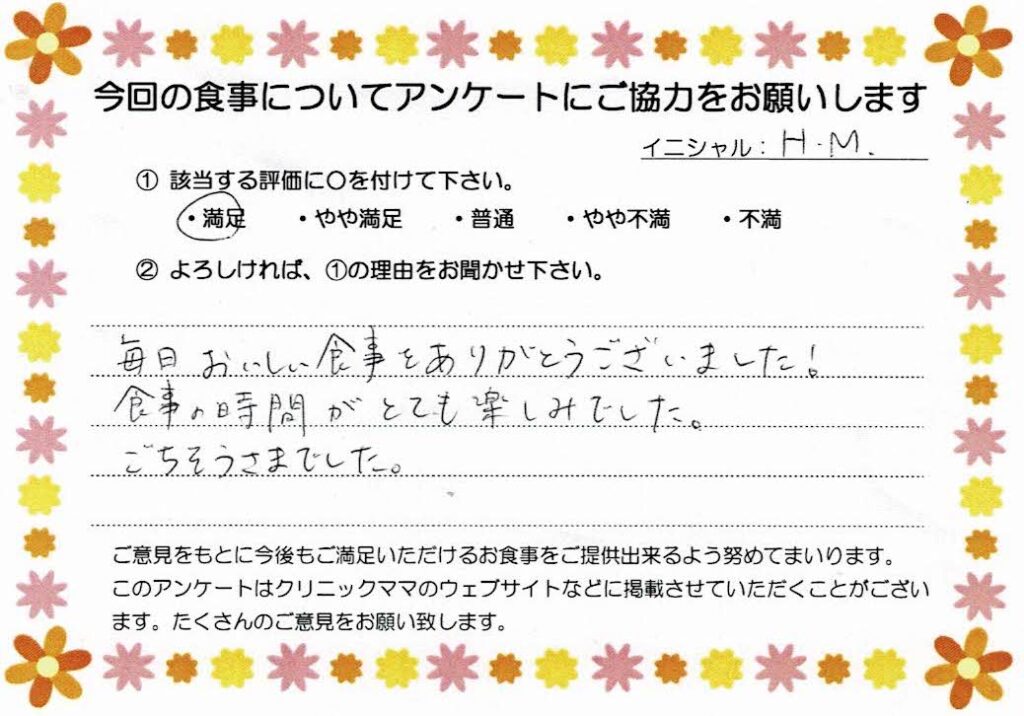 今回の食事についてアンケートにご協力をお願いします
イニシャル：H.M.
① 該当する評価に○を付けて下さい。
・満足 ・やや満足 ・普通 ・やや不満 ・不満
② よろしければ、①の理由をお聞かせ下さい。
毎日おいしい食事をありがとうございました！
食事の時間がとても楽しみでした。
ごちそうさまでした。
ご意見をもとに今後もご満足いただけるお食事をご提供出来るよう努めてまいります。
このアンケートはクリニックママのウェブサイトなどに掲載させていただくことがござい
ます。たくさんのご意見をお願い致します。